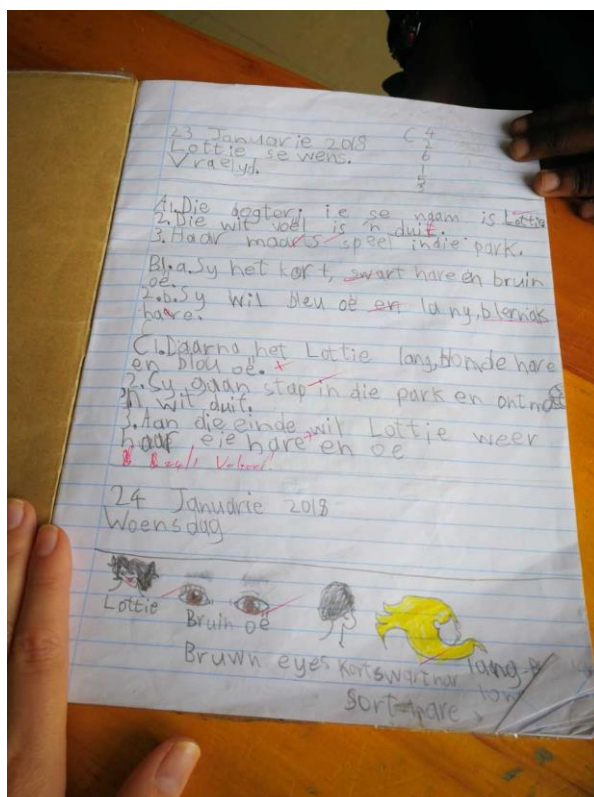 23 Januarie 2018
Lottie se wens.
Vraelyd.
C 4
2
6
1
5
3
A1. Die dogterjie se naam is Lottie
2. Die wit voël is 'n duif.
3. Haar maats speel indie park.
B1.a. Sy het kort, swart hare en bruin
oë.
2.b. Sy wil bleu oë en lang,
haare.
C1. Daarna het Lottie lang, blonde hare
en blou oë.
2. Sy gaan stap in die park en ontmoet
'n wit duif.
3. Aan die einde wil Lottie weer
haar eie hare en oe
24 Januarie 2018
Woensdag
Lottie
Bruin oë
Bruwn eyes
Kort swart har
lang
Sort